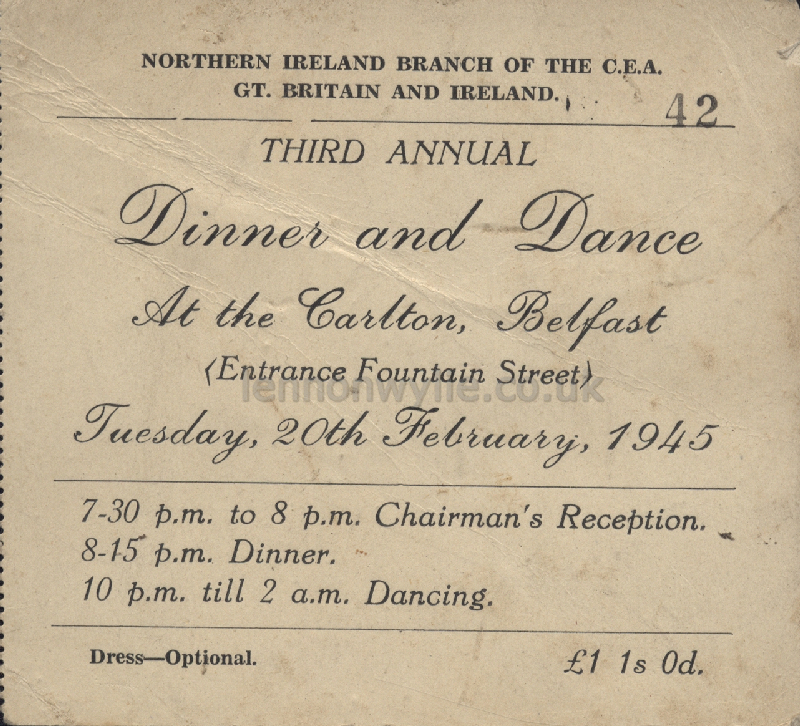 NORTHERN IRELAND BRANCH OF THE C.E.A.
GT. BRITAIN AND IRELAND.
42
THIRD ANNUAL
Dinner and Dance
At the Carlton, Belfast
(Entrance Fountain Street)
lennonwylie.co.uk
Tuesday, 20th February, 1945
7-30 p.m. to 8 p.m. Chairman's Reception.
8-15 p.m. Dinner.
10 p.m. till 2 a.m. Dancing.
Dress—Optional.
£1 1s 0d.